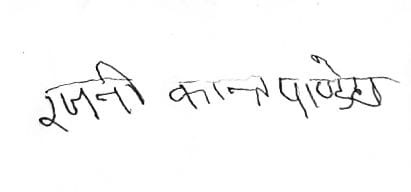 रजनी कान्त पाण्डेय